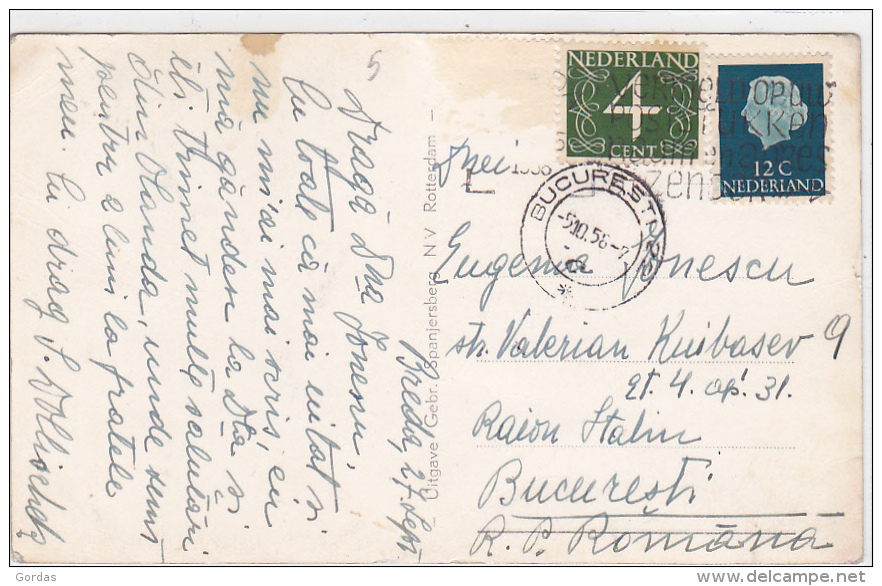 5
Breda, 27 Sept
Dragă Dna Ionescu,
Cu toate că m'ai uitat și
nu m'ai mai scris, eu
mă gândesc la Dta și
îți trimet multe salutări
din Olanda, unde sunt
pentru 2 luni la fratele
meu. Cu drag S.
Uitgave Gebr. Spanjersberg N V Rotterdam
NEDERLAND
4
CENT
12 C
NEDERLAND
1956
BUCUREȘTI
-5.10.56-7
Dnei
Eugenia Ionescu
str. Valerian Kuibasev 9
et. 4 ap. 31.
Raion Stalin
București
R. P. Română
Gordas
delcampe.net